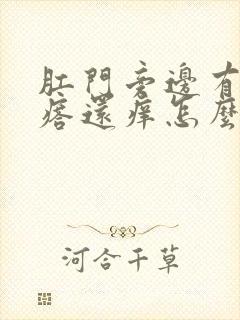 肛門旁邊有
痞還痒怎麼
河合千草